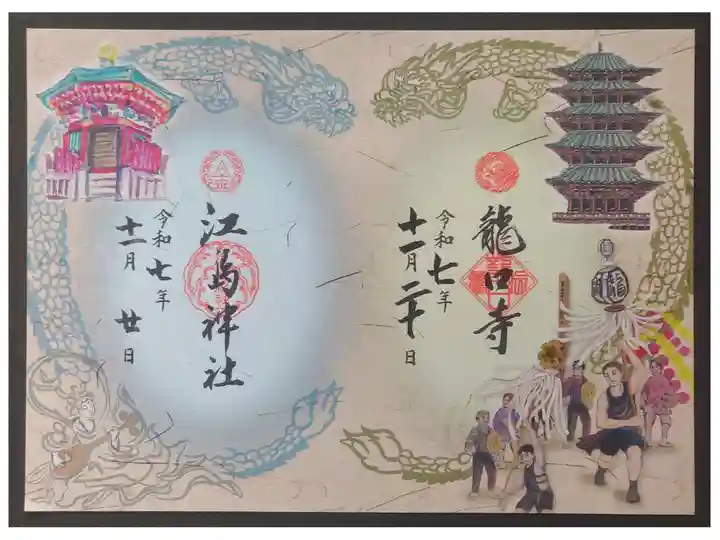 龍口寺
令和七年
十一月二十日
龍
江島神社
令和七年
十一月廿日